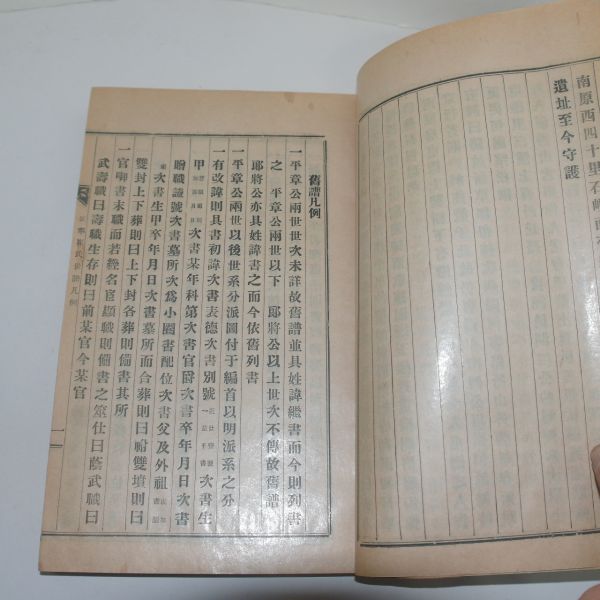 南原西四十里
遺址至今守護
舊譜凡例
一平章公兩世世次未詳故舊譜並具姓諱繼書而今則列書
之 平章公兩世以下 郞將公以上世次不傳故舊譜
郞將公亦具姓諱書之而今依舊列書
一平章公兩世以後世系分派圖付于編首以明派系之分
一有改諱則具書初諱次書表德次書別號 次書生
甲 次書某年科第次書官爵次書卒年月日次書
贈職諡號次書墓所次爲小圈書配位次書父及外祖
次書生甲卒年月日次書墓所而合葬則曰祔雙墳則曰
雙封上下葬則曰上下封各葬則備書其所
一官啣書末職而若經名宦顯職則備書之筮仕曰蔭武職曰
武壽職曰壽職生存則曰前某官今某官
氏世譜凡例
一